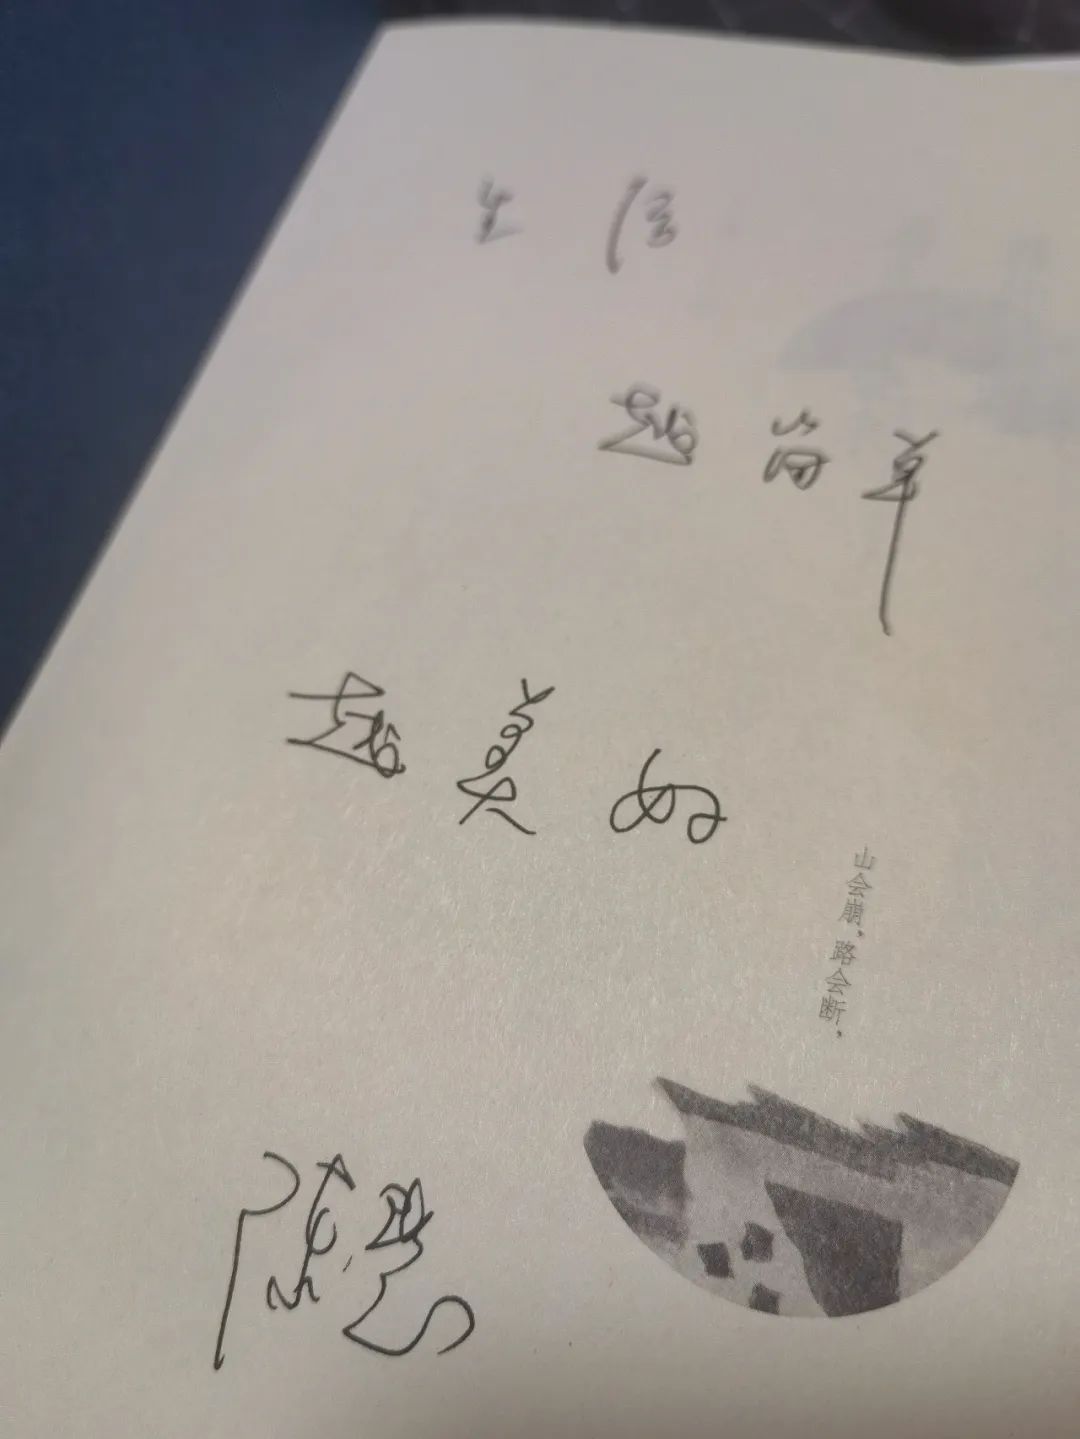 生活
越简单
越美好
山会崩，路会断，
陈